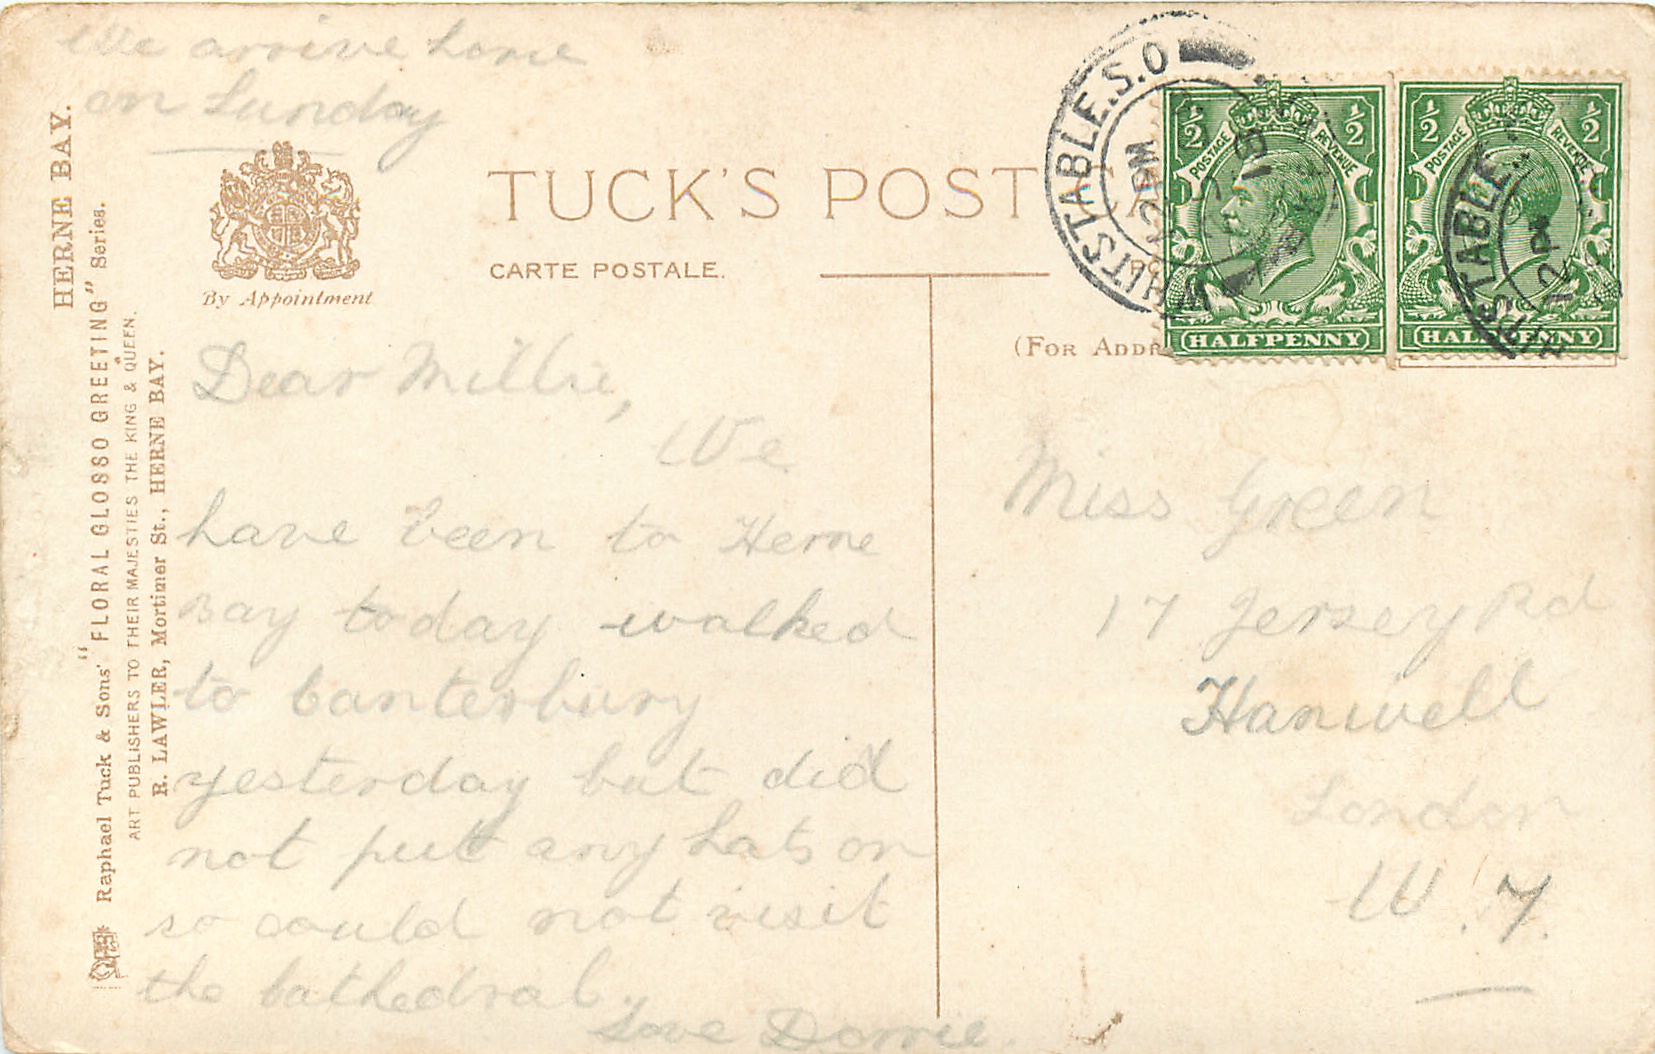 We arrive home
on Sunday
HERNE BAY.
Raphael Tuck & Sons' "FLORAL GLOSSO GREETING" Series.
ART PUBLISHERS TO THEIR MAJESTIES THE KING & QUEEN.
R. LAWLER, Mortimer St., HERNE BAY.
By Appointment
TUCK'S POST CA
CARTE POSTALE.
(FOR ADDR
WHITSTABLE.S.O
POSTAGE REVENUE
½ ½
HALFPENNY
WHITSTABLE.
POSTAGE REVENUE
½ ½
HALFPENNY
Dear Millie,
We
have been to Herne
Bay today walked
to Canterbury
yesterday but did
not put any hats on
so could not visit
the Cathedral.
Love Dorrie.
Miss Green
17 Jersey Rd
Hanwell
London
W.7.